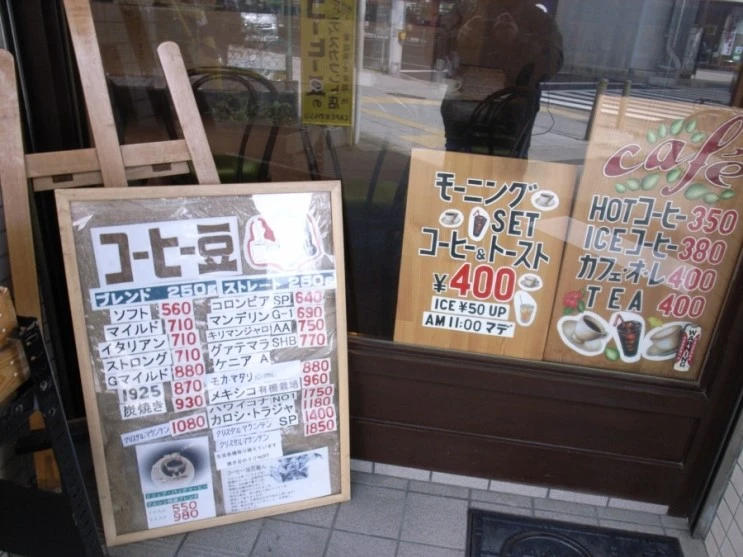 コーヒー豆
ブレンド 250g ストレート 250g
ソフト 560
マイルド 710
イタリアン 710
ストロング 710
Gマイルド 880
1925 870
炭焼き 930
クリスタルマウンテン 1080
コロンビア SP 640
マンデリン G-1 690
キリマンジャロ AA 750
グァテマラ SHB 770
ケニア A
モカマタリ 880
メキシコ有機栽培 960
ハワイコナ NO1 1750
カロシ・トラジャ 1180
クリスタルマウンテン 1400
クリスタルマウンテン SP 1850
550
980
コーヒー豆の
モーニング
SET
コーヒー&トースト
¥400
ICE ¥50 UP
AM 11:00 マデ
café
HOTコーヒー 350
ICEコーヒー 380
カフェ・オ・レ 400
TEA 400